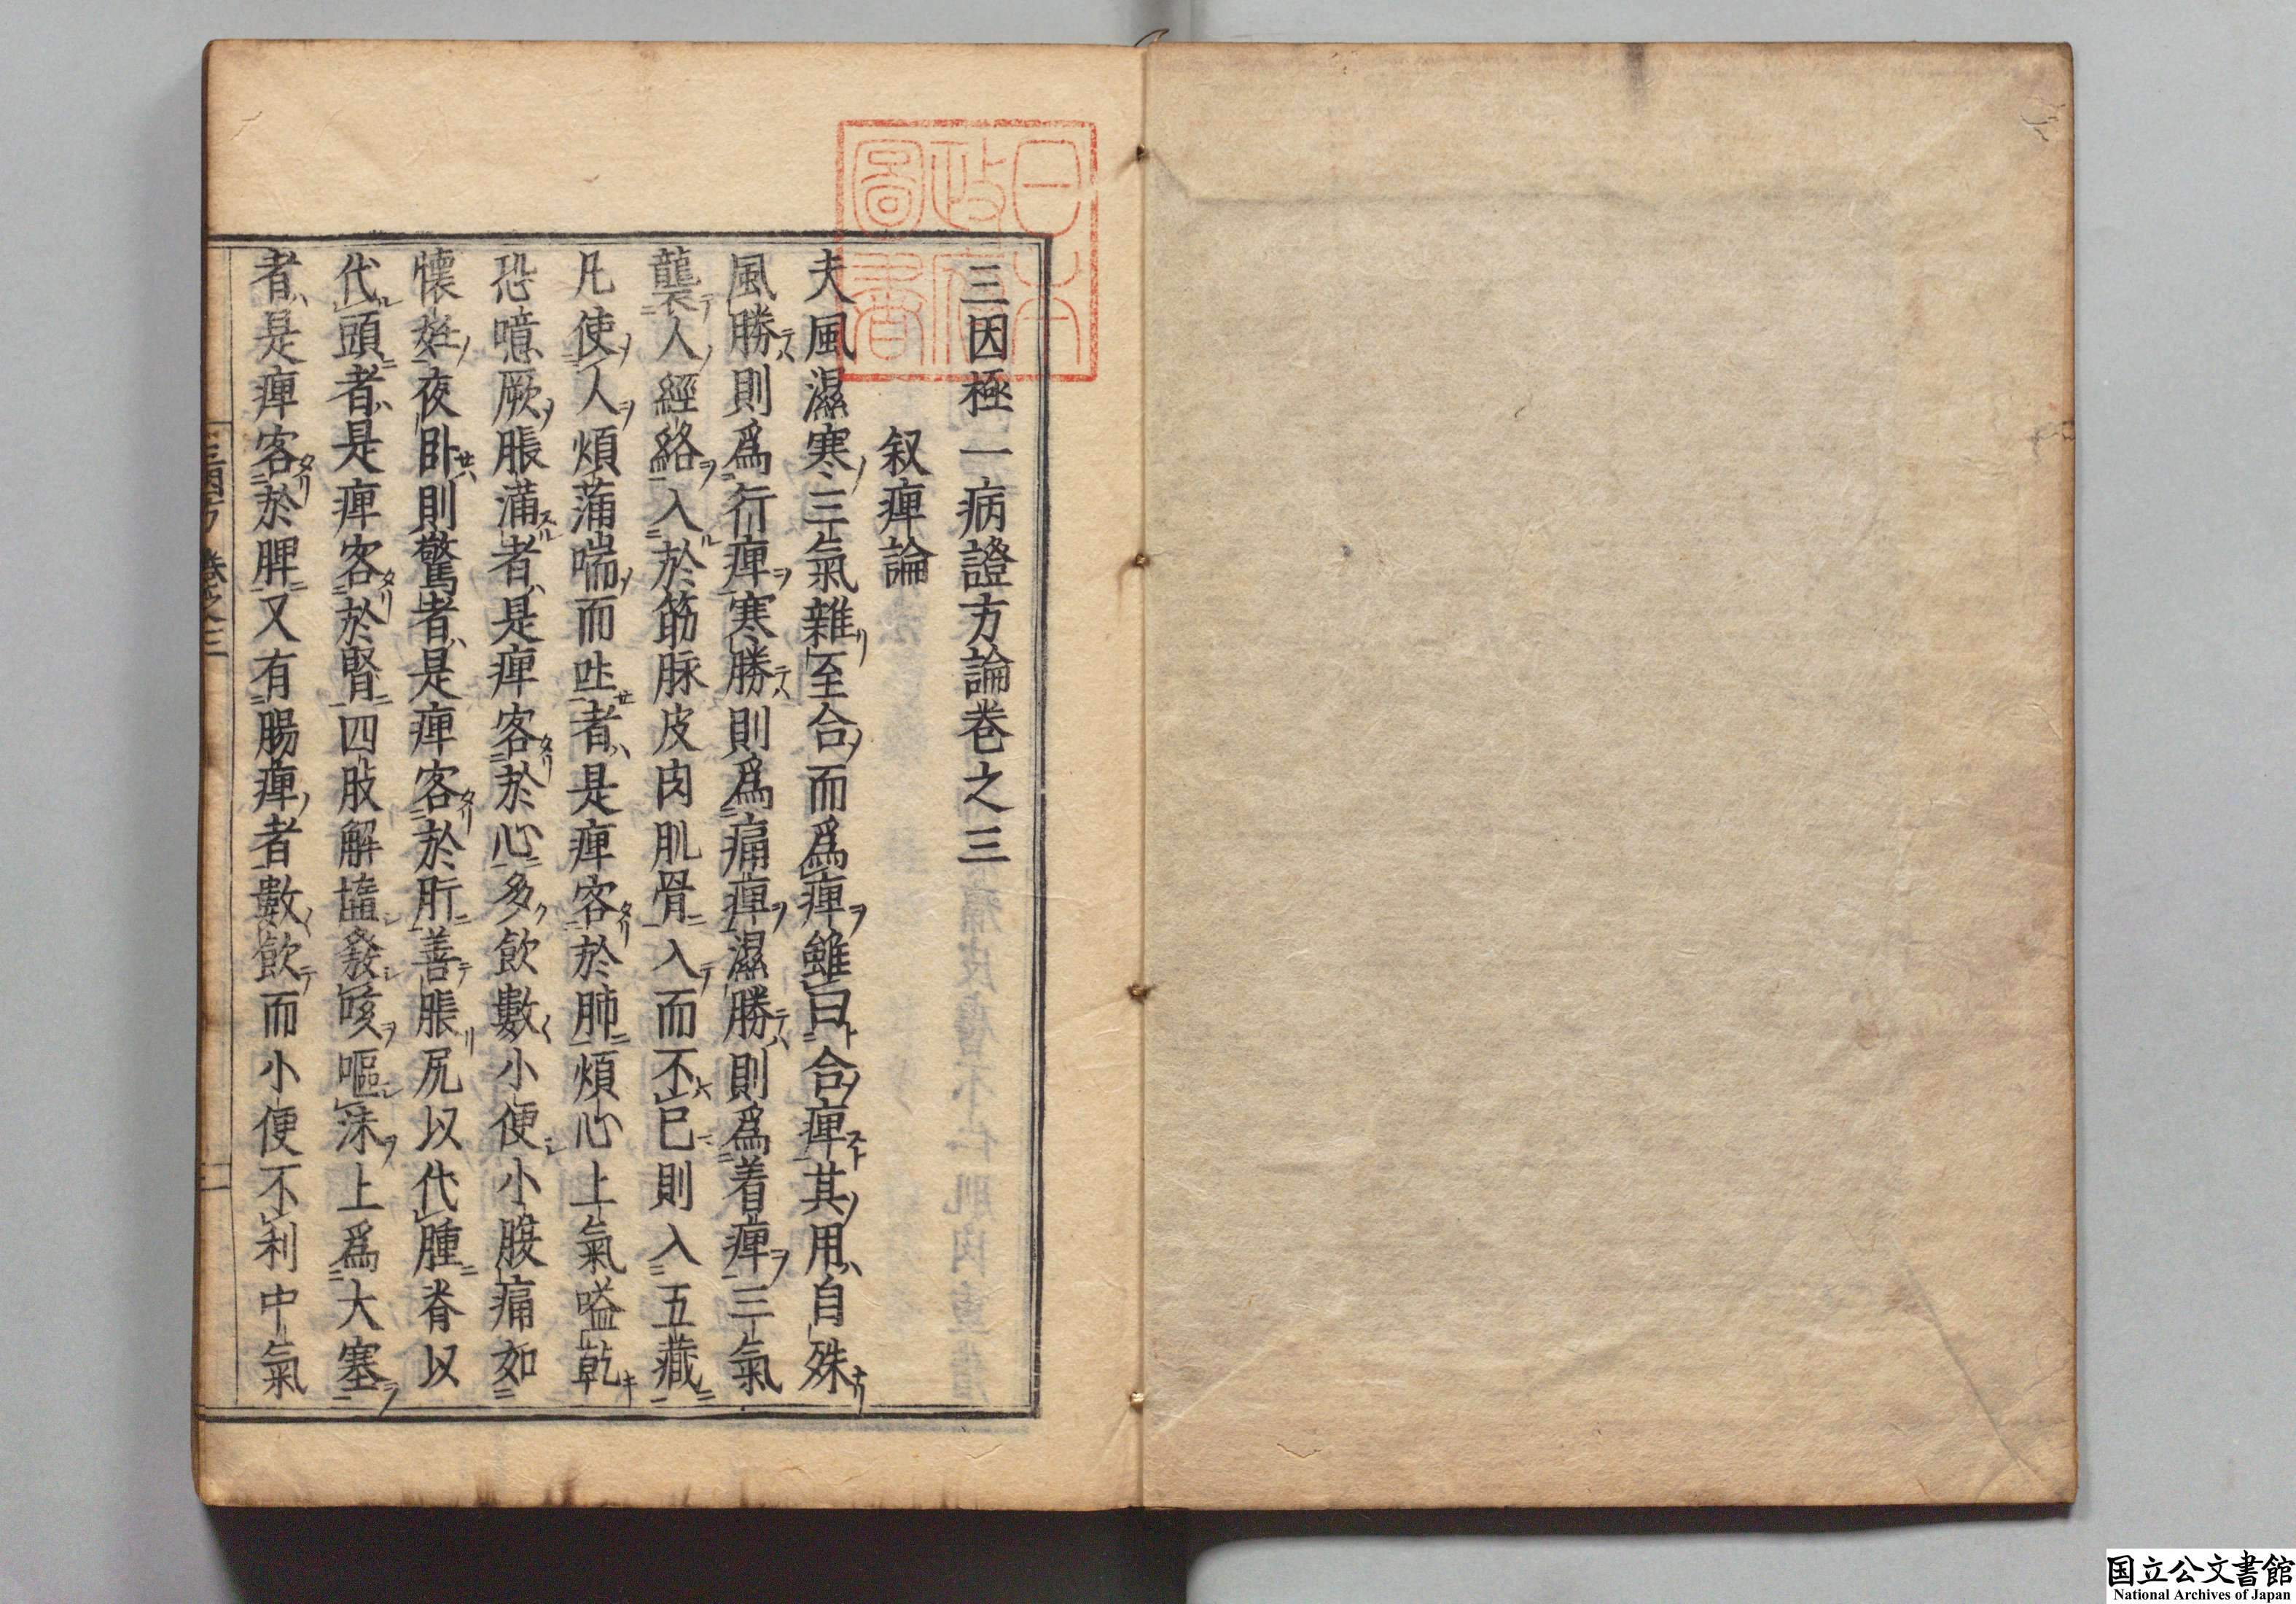 三因極一病證方論卷之三
叙痺論
夫風濕寒三氣雜至合而爲痺雖曰合痺其用自殊
風勝則爲行痺寒勝則爲痛痺濕勝則爲着痺三氣
襲人經絡入於筋脉皮肉肌骨入而不已則入五藏
凡使人煩滿喘而吐者是痺客於肺煩心上氣嗌乾
恐噫厥脹滿者是痺客於心多飲數小便小腹痛如
懷姙夜卧則驚者是痺客於肝善脹尻以代腫脊以
代頭者是痺客於腎四肢解墯發咳嘔沫上爲大塞
者是痺客於脾又有腸痺者數飲而小便不利中氣
三因方 卷之三
日本
政府
圖書
国立公文書館
National Archives of Japan